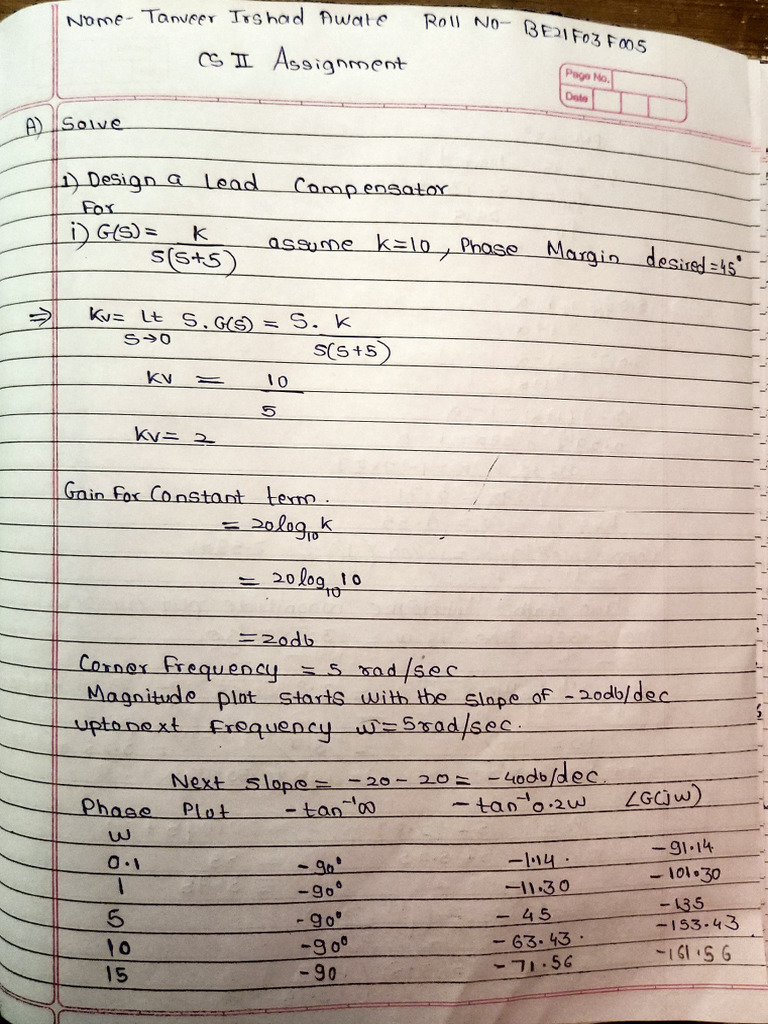 Name- Tanveer Irshad Awate Roll No- BE21F03F005
CS II Assignment
Page No.
Date
A) Solve
1) Design a Lead Compensator
For
i) G(S) = K / S(S+5) assume K=10, Phase Margin desired=45°
⇒ Kv= Lt S→0 S.G(S) = S. K / S(S+5)
Kv = 10 / 5
Kv= 2
Gain For Constant term.
= 20log₁₀K
= 20log₁₀10
= 20db
Corner Frequency = 5 rad/sec
Magnitude plot starts with the slope of -20db/dec
upto next Frequency w=5rad/sec.
Next slope= -20-20= -40db/dec.
Phase Plot -tan⁻¹∞ -tan⁻¹0.2w ∠G(jw)
w
0.1 -90° -1.14. -91.14
1 -90° -11.30 -101.30
5 -90° -45 -135
10 -90° -63.43. -153.43
15 -90 -71.56 -161.56